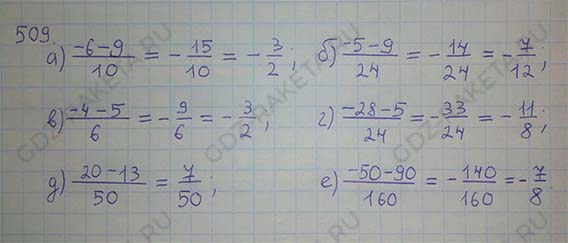 509.
а) (-6-9)/10 = -15/10 = -3/2; б) (-5-9)/24 = -14/24 = -7/12;
в) (-4-5)/6 = -9/6 = -3/2; г) (-28-5)/24 = -33/24 = -11/8;
д) (20-13)/50 = 7/50; е) (-50-90)/160 = -140/160 = -7/8
GDZ-RAKETA.RU